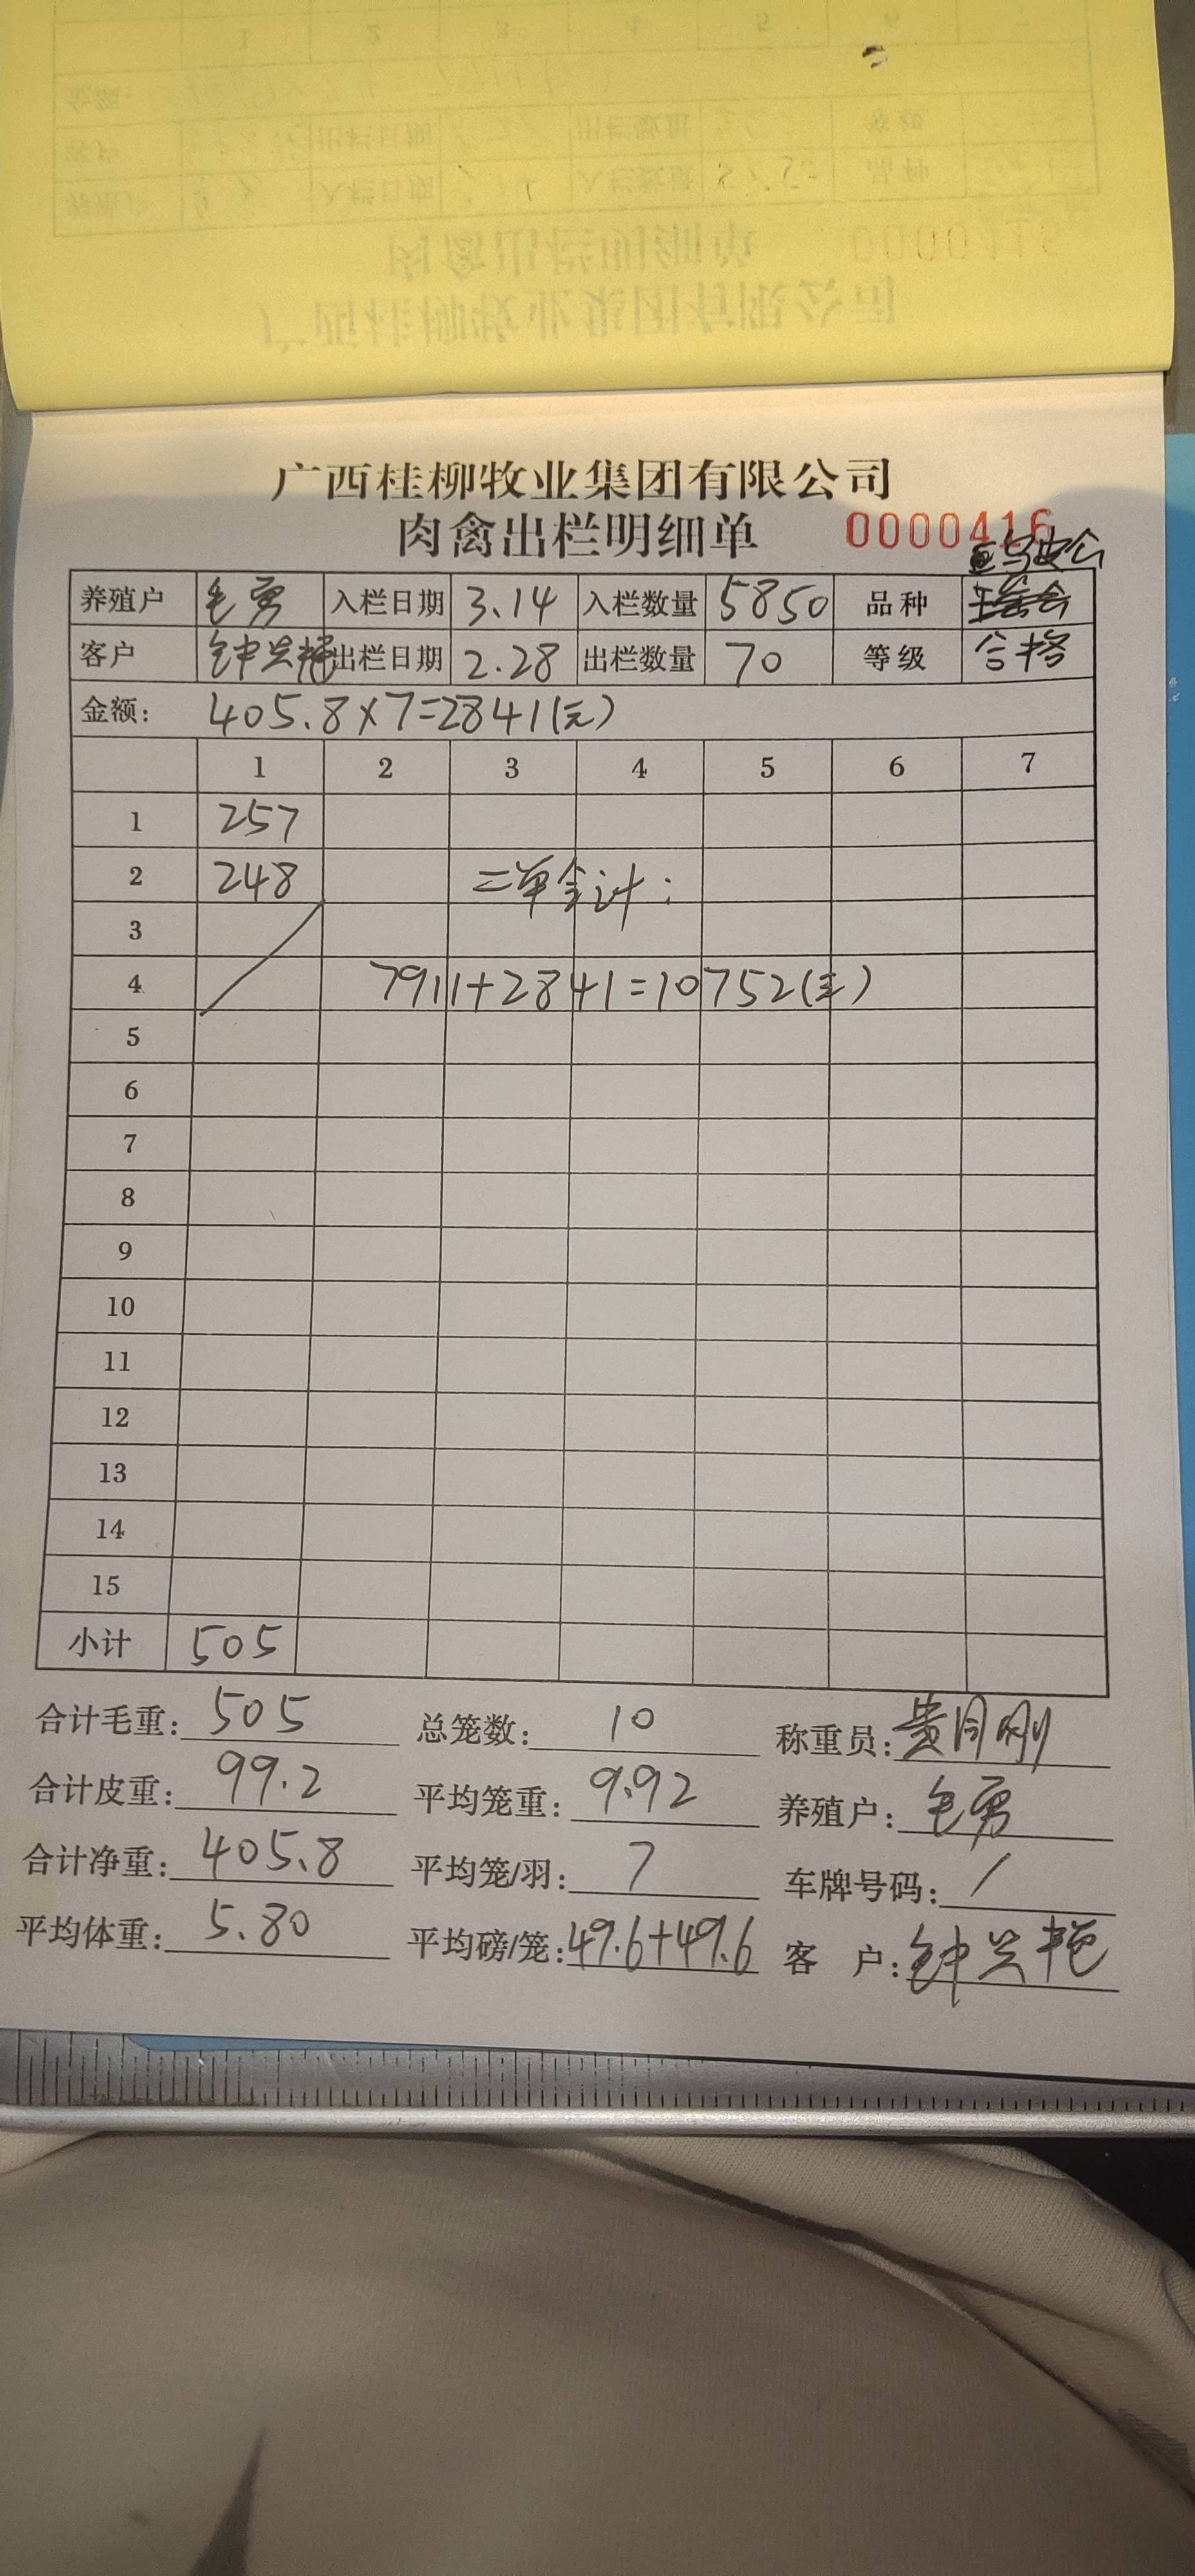 广西桂柳牧业集团有限公司
肉禽出栏明细单 0000416
乌皮公
养殖户 毛勇 入栏日期 3.14 入栏数量 5850 品种
客户 钟兴艳 出栏日期 2.28 出栏数量 70 等级 合格
金额: 405.8×7=2841(元)
1 2 3 4 5 6 7
1 257
2 248 二单合计:
3
4 7911+2841=10752(元)
5
6
7
8
9
10
11
12
13
14
15
小计 505
合计毛重: 505 总笼数: 10 称重员: 黄同刚
合计皮重: 99.2 平均笼重: 9.92 养殖户: 毛勇
合计净重: 405.8 平均笼/羽: 7 车牌号码: /
平均体重: 5.80 平均磅/笼: 49.6+49.6 客 户: 钟兴艳